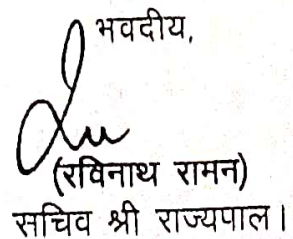 भवदीय,
(रविनाथ रामन)
सचिव श्री राज्यपाल।